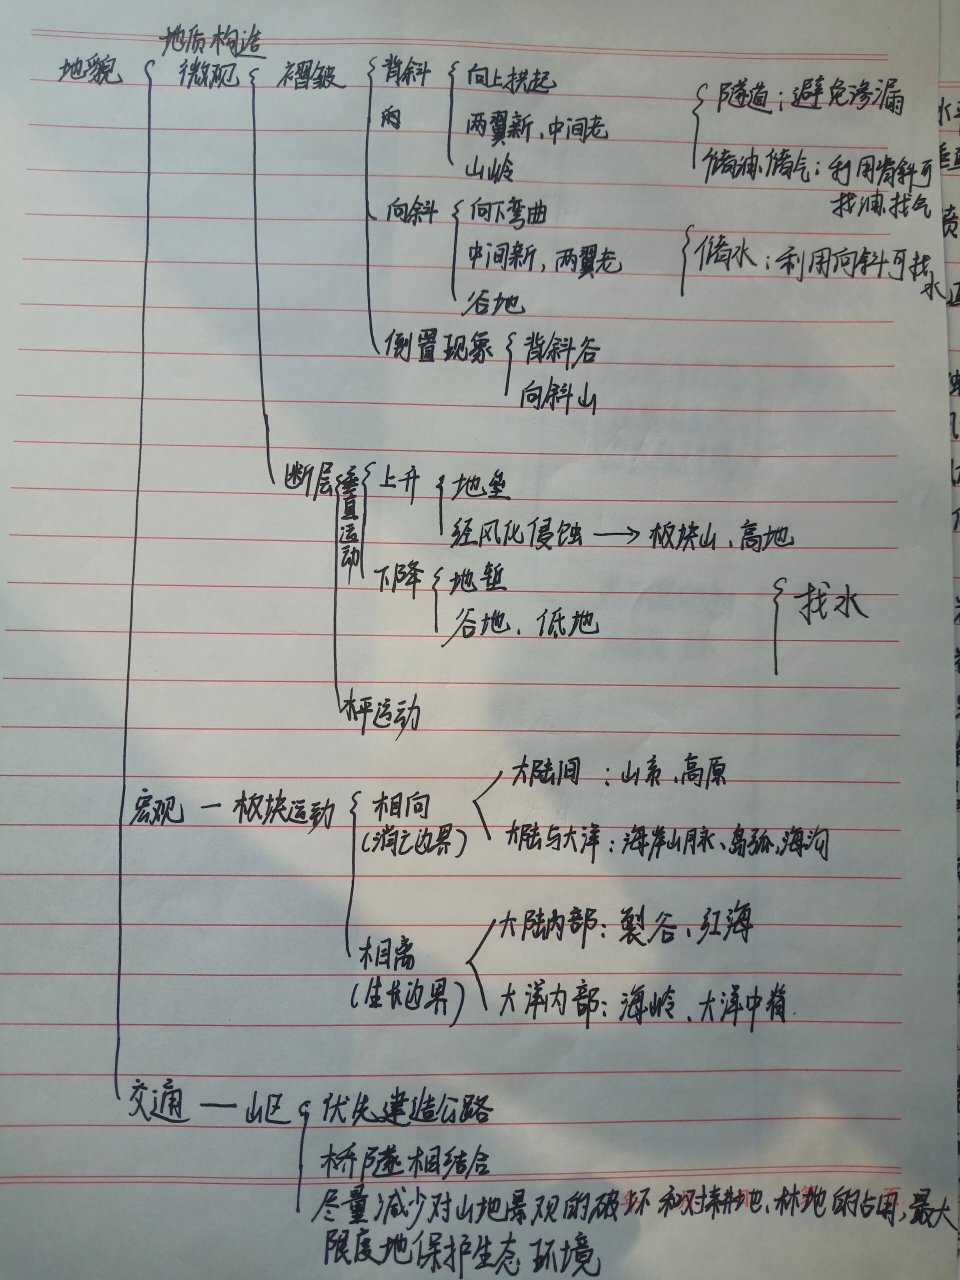 地质构造
地貌 微观 褶皱 背斜 向上拱起
的 两翼新、中间老
山岭
隧道：避免渗漏
储油、储气：利用背斜可
找油、找气
向斜 向下弯曲
中间新，两翼老
谷地
储水：利用向斜可找
水
倒置现象 背斜谷
向斜山
断层 垂直运动 上升 地垒
经风化侵蚀→板块山、高地
下降 地堑
谷地、低地
找水
水平运动
宏观—板块运动 相向
(消亡边界)
大陆间：山系、高原
大陆与大洋：海岸山脉、岛弧、海沟
相离
(生长边界)
大陆内部：裂谷、红海
大洋内部：海岭、大洋中脊
交通—山区 优先建造公路
桥隧相结合
尽量减少对山地景观的破坏和对耕地、林地的占用，最大
限度地保护生态环境